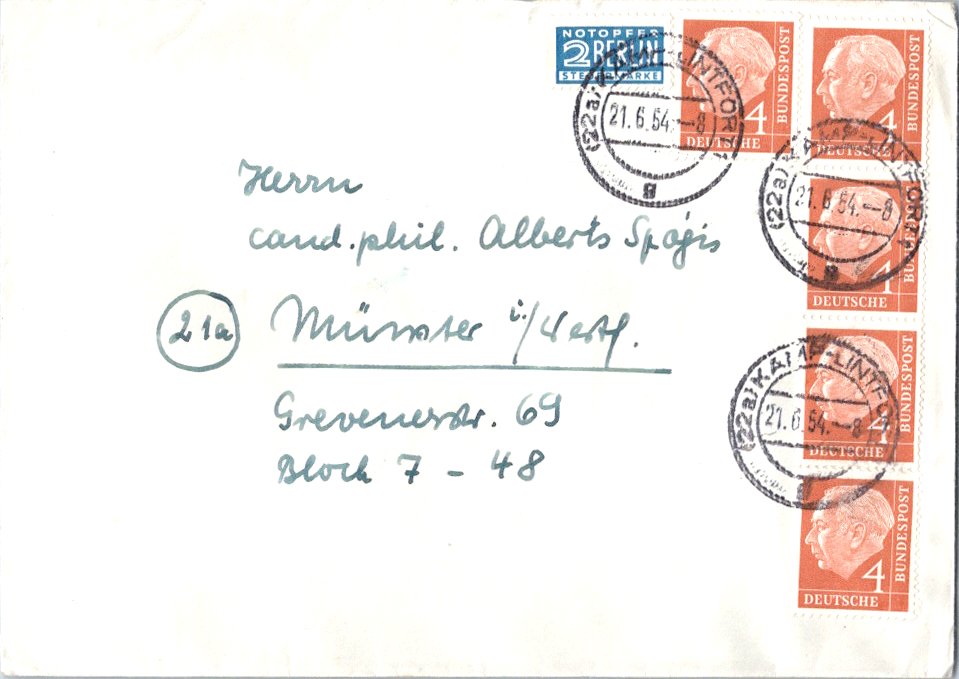 NOTOPFER
2 BERLIN
STEUERMARKE
4
DEUTSCHE
BUNDESPOST
4
DEUTSCHE
BUNDESPOST
(22a) KAMP-LINTFORT
21.6.54.-8
g
(22a) KAMP-LINTFORT
21.6.54.-8
g
4
DEUTSCHE
BUNDESPOST
Herrn
cand. phil. Alberts Spōģis
21a
Münster i./Westf.
(22a) KAMP-LINTFORT
21.6.54.-8
4
DEUTSCHE
BUNDESPOST
Grevenerstr. 69
Block 7 - 48
4
DEUTSCHE
BUNDESPOST